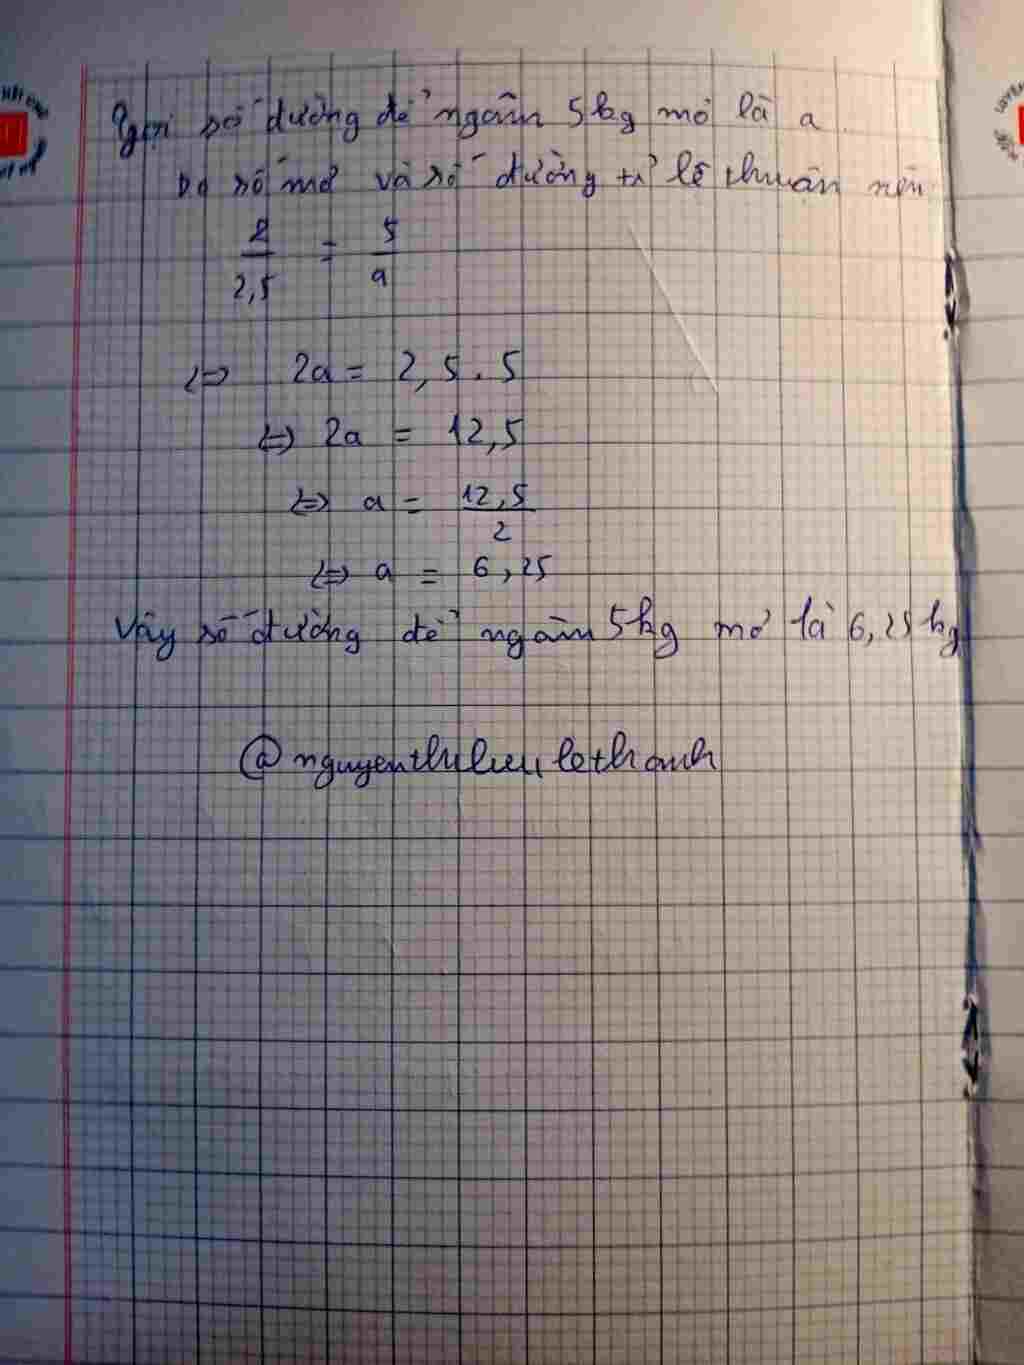 Gọi số đường để ngâm 5kg mơ là a.
Do số mơ và số đường tỉ lệ thuận nên
2/2,5 = 5/a
<=> 2a = 2,5 . 5
<=> 2a = 12,5
<=> a = 12,5/2
<=> a = 6,25
Vậy số đường để ngâm 5kg mơ là 6,25 kg